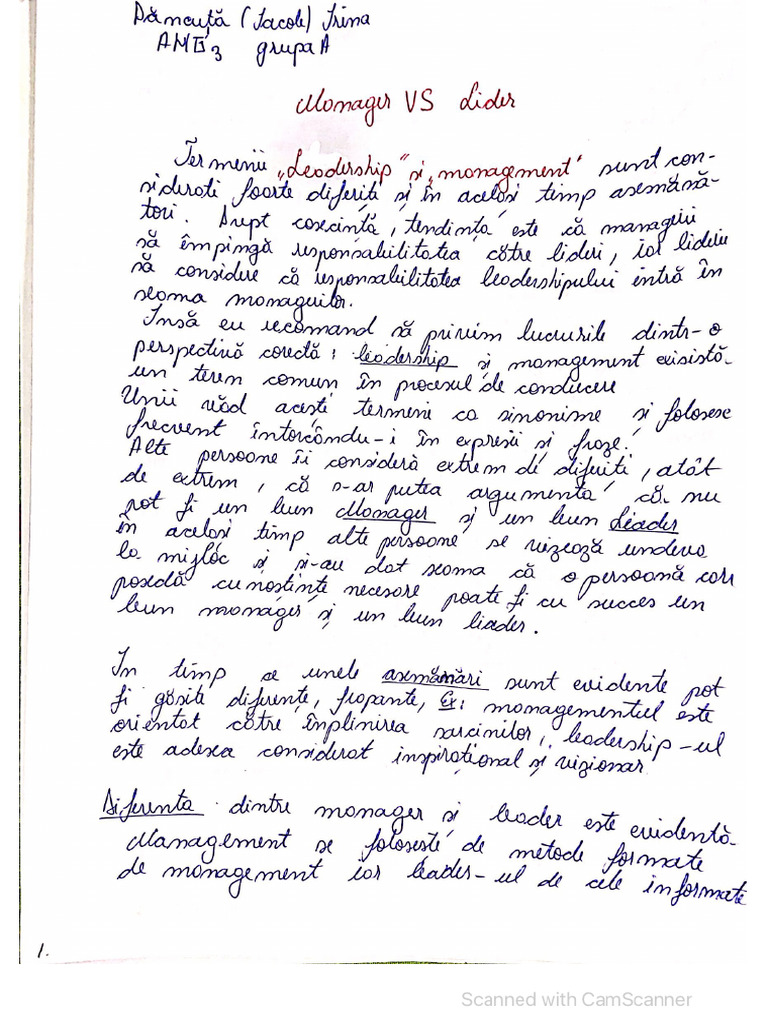 Dămcuță (Iacob) Irina
AMG3 grupa A
Manager VS Lider
Termenii „Leadership" și „management" sunt con-
siderati foarte diferiți și în același timp asemănă-
tori. Drept cosecință, tendința este că manageri
să împingă responsabilitatea către lideri, iar liderii
să considere că responsabilitatea leadershipului intră în
seama managerilor.
Însă eu recomand să privim lucrurile dintr-o
perspectivă corectă: leadership și management există-
un teren comun în procesul de conducere
Unii văd acești termeni ca sinonime și folosesc
frecvent întorcându-i în expresii și fraze.
Alte persoane îi consideră extrem de diferiți, atât
de extrem, că s-ar putea argumenta că nu
pot fi un bun Manager și un bun Leader
în același timp alte persoane se vizează undeva
la mijloc și și-au dat seama că o persoană care
posedă cunoștințe necesare poate fi cu succes un
bun manager și un bun liader.
În timp ce unele asemănări sunt evidente pot
fi găsite diferențe, frapante, Ex: managementul este
orientat către înplinirea sarcinilor, leadership-ul
este adesea considerat inspirațional și vizionar
Diferenta dintre manager si leader este evidentă.
Management se folosește de metode formate
de management iar leader-ul de cele informate
1.
Scanned with CamScanner